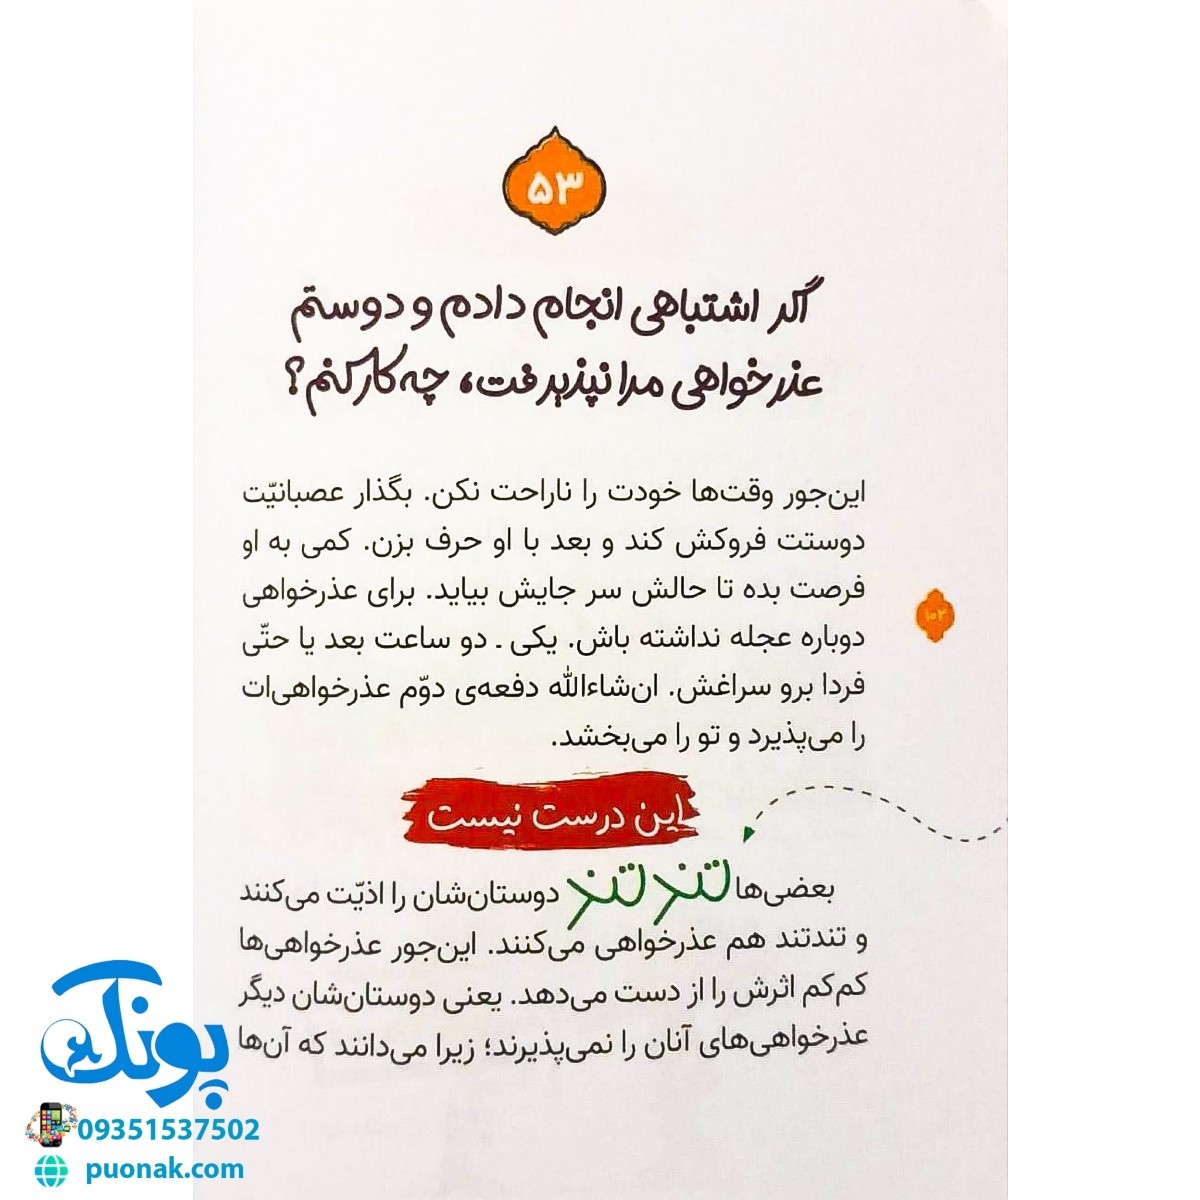 ۵۳
اگر اشتباهی انجام دادم و دوستم
عذرخواهی مرا نپذیرفت، چه کار کنم؟
این‌جور وقت‌ها خودت را ناراحت نکن. بگذار عصبانیّت
دوستت فروکش کند و بعد با او حرف بزن. کمی به او
فرصت بده تا حالش سر جایش بیاید. برای عذرخواهی
دوباره عجله نداشته باش. یکی ـ دو ساعت بعد یا حتّی
فردا برو سراغش. ان‌شاءالله دفعه‌ی دوّم عذرخواهی‌ات
را می‌پذیرد و تو را می‌بخشد.
۱۰۲
این درست نیست
بعضی‌ها تند تند دوستان‌شان را اذیّت می‌کنند
و تندتند هم عذرخواهی می‌کنند. این‌جور عذرخواهی‌ها
کم‌کم اثرش را از دست می‌دهد. یعنی دوستان‌شان دیگر
عذرخواهی‌های آنان را نمی‌پذیرند؛ زیرا می‌دانند که آن‌ها
پونک
09351537502
puonak.com